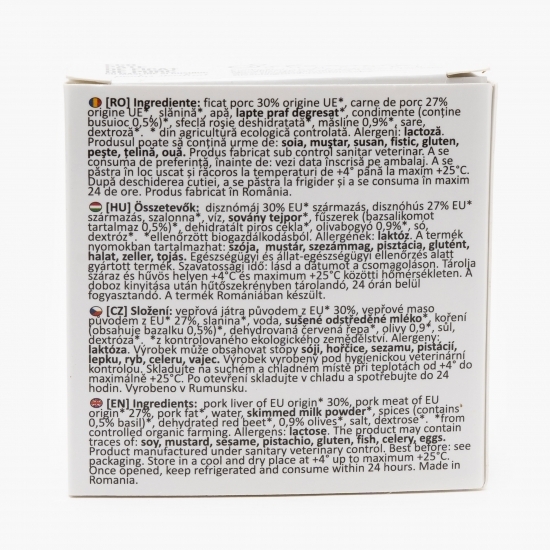 [RO] Ingrediente: ficat porc 30% origine UE*, carne de porc 27%
origine UE*, slănină*, apă, lapte praf degresat*, condimente (conține
busuioc 0,5%)*, sfeclă roșie deshidratată*, măsline 0,9%*, sare,
dextroză*. * din agricultură ecologică controlată. Alergeni: lactoză.
Produsul poate să conțină urme de: soia, muștar, susan, fistic, gluten,
pește, țelină, ouă. Produs fabricat sub control sanitar veterinar. A se
consuma de preferință, înainte de: vezi data înscrisă pe ambalaj. A se
păstra în loc uscat și răcoros la temperaturi de +4° până la maxim +25°C.
După deschiderea cutiei, a se păstra la frigider și a se consuma în maxim
24 de ore. Produs fabricat în România.
[HU] Összetevők: disznómáj 30% EU* származás, disznóhús 27% EU*
származás, szalonna*, víz, sovány tejpor*, fűszerek (bazsalikomot
tartalmaz 0,5%)*, dehidratált piros cékla*, olivabogyó 0,9%*, só,
dextróz*. *ellenőrzött biogazdálkodásból. Allergének: laktóz. A termék
nyomokban tartalmazhat: szója, mustár, szezámmag, pisztácia, glutént,
halat, zeller, tojás. Egészségügyi és állat-egészségügyi ellenőrzés alatt
gyártott termék. Szavatossági idő: lásd a dátumot a csomagoláson. Tárolja
száraz és hűvös helyen +4°C és maximum +25°C közötti hőmérsékleten. A
doboz kinyitása után hűtőszekrényben tárolandó, 24 órán belül
fogyasztandó. A termék Romániában készült.
[CZ] Složení: vepřová játra původem z EU* 30%, vepřové maso
původem z EU* 27%, slanina*, voda, sušené odstředěné mléko*, koření
(obsahuje bazalku 0,5%)*, dehydrovaná červená řepa*, olivy 0,9*, sůl,
dextróza*. *z kontrolovaného ekologického zemědělství. Alergeny:
laktóza. Výrobek může obsahovat stopy sóji, hořčice, sezamu, pistácií,
lepku, ryb, celeru, vajec. Výrobek vyrobený pod hygienickou veterinární
kontrolou. Skladujte na suchém a chladném místě při teplotách od +4° do
maximálně +25°C. Po otevření skladujte v chladu a spotřebujte do 24
hodin. Vyrobeno v Rumunsku.
[EN] Ingredients: pork liver of EU origin* 30%, pork meat of EU
origin* 27%, pork fat*, water, skimmed milk powder*, spices (contains
0,5% basil)*, dehydrated red beet*, 0,9% olives*, salt, dextrose*. *from
controlled organic farming. Allergens: lactose. The product may contain
traces of: soy, mustard, sesame, pistachio, gluten, fish, celery, eggs.
Product manufactured under sanitary veterinary control. Best before: see
packaging. Store in a cool and dry place at +4° up to maximum +25°C.
Once opened, keep refrigerated and consume within 24 hours. Made in
Romania.